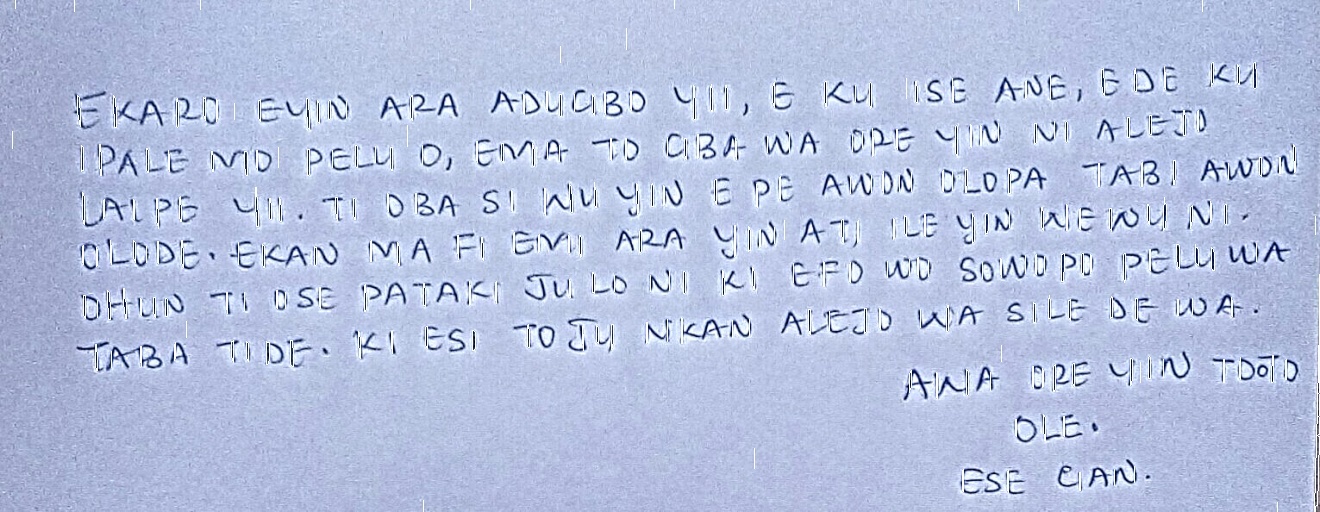 EKARO EYIN ARA ADUGBO YII, E KU ISE ANE, E DE KU
IPALE MO PELU O, EMA TO GBA WA ORE YIN NI ALEJO
LALPE YII. TI OBA SI WU YIN E PE AWON OLOPA TABI AWON
OLODE. EKAN MA FI EMI ARA YIN ATI ILE YIN WEWU NI.
OHUN TI OSE PATAKI JULO NI KI EFO WO SOWO PO PELU WA
TABA TI DE. KI ESI TOJU NKAN ALEJO WA SILE DE WA.
AWA ORE YIIN TOOTO
OLE.
ESE GAN.